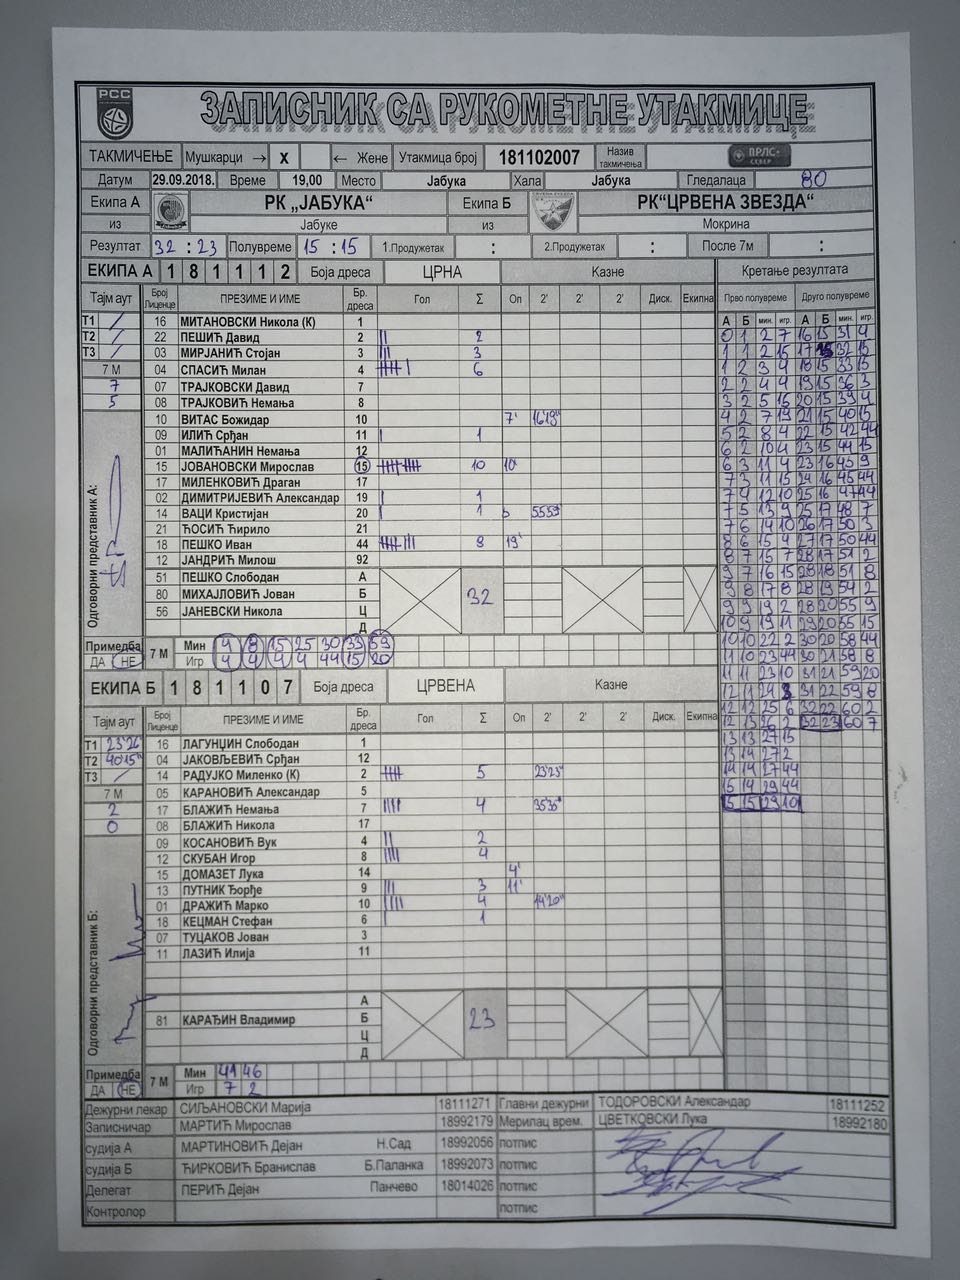 РСС
ЗАПИСНИК СА РУКОМЕТНЕ УТАКМИЦЕ
ТАКМИЧЕЊЕ Мушкарци → X ← Жене Утакмица број 181102007 Назив такмичења ПРЛС-СЕВЕР
Датум 29.09.2018. Време 19,00 Место Јабука Хала Јабука Гледалаца 80
Екипа А РК „ЈАБУКА“ Екипа Б РК“ЦРВЕНА ЗВЕЗДА“
из Јабуке из Мокрина
Резултат 32 : 23 Полувреме 15 : 15 1.Продужетак : 2.Продужетак : После 7м :
ЕКИПА А 1 8 1 1 1 2 Боја дреса ЦРНА Казне Кретање резултата
Тајм аут Број Лиценце ПРЕЗИМЕ И ИМЕ Бр. дреса Гол Σ Оп 2' 2' 2' Диск. Екипна Прво полувреме Друго полувреме
А Б мин. игр. А Б мин. игр.
Т1 / 16 МИТАНОВСКИ Никола (К) 1
Т2 / 22 ПЕШИЋ Давид 2 || 2
Т3 / 03 МИРЈАНИЋ Стојан 3 ||| 3
7 М 04 СПАСИЋ Милан 4 6
7 07 ТРАЈКОВСКИ Давид 7
5 08 ТРАЈКОВИЋ Немања 8
10 ВИТАС Божидар 10 7' 16'19"
09 ИЛИЋ Срђан 11 | 1
01 МАЛИЋАНИН Немања 12
15 ЈОВАНОВСКИ Мирослав 15 10 10'
17 МИЛЕНКОВИЋ Драган 17
02 ДИМИТРИЈЕВИЋ Александар 19 | 1
14 ВАЦИ Кристијан 20 | 1 55'59"
21 ЋОСИЋ Ћирило 21
18 ПЕШКО Иван 44 8 19'
12 ЈАНДРИЋ Милош 92
51 ПЕШКО Слободан А
80 МИХАЈЛОВИЋ Јован Б 32
56 ЈАНЕВСКИ Никола Ц
Д
Одговорни представник А:
Примедба ДА НЕ 7 М
Мин 4 8 15 25 30 33 59
Игр 4 4 4 4 44 15 20
0 1 2 7 16 15 31 4
1 1 2 15 17 15 32 15
1 2 3 4 18 15 33 15
2 2 4 4 19 15 36 3
3 2 5 15 20 15 39 4
4 2 7 19 21 15 40 15
5 2 8 4 22 15 42 44
6 2 10 4 23 15 44 15
6 3 11 4 23 16 45 9
7 3 11 15 24 16 45 44
7 4 12 10 25 16 47 44
7 5 13 9 25 17 48 7
7 6 14 10 26 17 50 3
8 6 15 4 27 17 50 44
8 7 15 7 28 17 51 2
9 7 16 15 28 18 51 8
9 8 17 8 28 19 54 2
9 9 19 2 28 20 55 9
10 9 19 11 29 20 55 15
10 10 22 2 30 20 58 44
11 10 23 44 30 21 58 8
11 11 23 10 31 21 59 20
12 11 24 3 31 22 59 8
12 12 25 6 32 22 60 2
12 13 26 2 32 23 60 7
13 13 27 15
13 14 27 2
14 14 27 44
15 14 29 44
15 15 29 10
ЕКИПА Б 1 8 1 1 0 7 Боја дреса ЦРВЕНА Казне
Тајм аут Број Лиценце ПРЕЗИМЕ И ИМЕ Бр. дреса Гол Σ Оп 2' 2' 2' Диск. Екипна
Т1 23'26 16 ЛАГУНЏИН Слободан 1
Т2 40'15" 04 ЈАКОВЉЕВИЋ Срђан 12
Т3 / 14 РАДУЈКО Миленко (К) 2 5 23'23"
7 М 05 КАРАНОВИЋ Александар 5
2 17 БЛАЖИЋ Немања 7 |||| 4 35'35"
0 08 БЛАЖИЋ Никола 17
09 КОСАНОВИЋ Вук 4 || 2
12 СКУБАН Игор 8 |||| 4
15 ДОМАЗЕТ Лука 14 4'
13 ПУТНИК Ђорђе 9 ||| 3 11'
01 ДРАЖИЋ Марко 10 |||| 4 14'20"
18 КЕЦМАН Стефан 6 | 1
07 ТУЦАКОВ Јован 3
11 ЛАЗИЋ Илија 11
А
81 КАРАЂИН Владимир Б 23
Ц
Д
Одговорни представник Б:
Примедба ДА НЕ 7 М
Мин 41 46
Игр 7 2
Дежурни лекар СИЉАНОВСКИ Марија 18111271 Главни дежурни ТОДОРОВСКИ Александар 18111252
Записничар МАРТИЋ Мирослав 18992179 Мерилац врем. ЦВЕТКОВСКИ Лука 18992180
судија А МАРТИНОВИЋ Дејан Н.Сад 18992056 потпис
судија Б ЋИРКОВИЋ Бранислав Б.Паланка 18992073 потпис
Делегат ПЕРИЋ Дејан Панчево 18014026 потпис
Контролор потпис